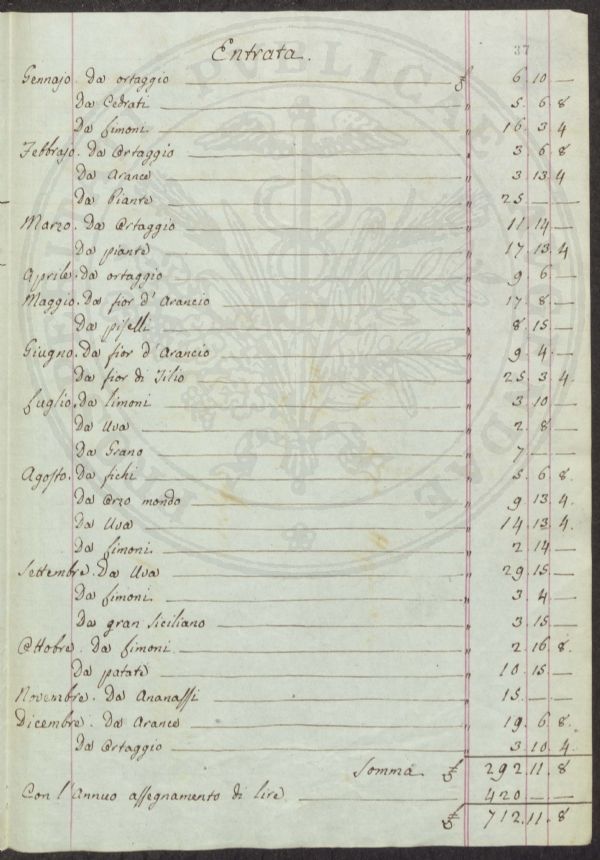 37
Entrata.
Gennajo. da ortaggio £ 6. 10. —
da Cedrati " 5. 6. 8
da limoni. " 16. 3. 4
Febbrajo. da Ortaggio " 3. 6. 8
da Arance " 3. 13. 4
da Piante " 25. — —
Marzo. da Ortaggio " 11. 14. —
da piante " 17. 13. 4
Aprile. da ortaggio " 9. 6. —
Maggio. da fior d'Arancio " 17. 8. —
da piselli " 8. 15. —
Giugno. da fior d'Arancio " 9. 4. —
da fior di Tilio " 25. 3. 4
Luglio. da limoni " 3. 10. —
da Uva " 2. 8. —
da Grano " 7. — —
Agosto. da fichi " 5. 6. 8.
da Orzo mondo " 9. 13. 4
da Uva " 14. 13. 4.
da limoni. " 2. 14. —
Settembre. da Uva " 29. 15. —
da limoni. " 3. 4. —
da gran Siciliano " 3. 15. —
Ottobre. da limoni. " 2. 16. 8.
da patate " 10. 15. —
Novembre. da Ananassi " 15. — —
Dicembre. da Arance " 19. 6. 8.
da Ortaggio " 3. 10. 4.
Somma £ 292. 11. 8
Con l'Annuo assegnamento di lire 420 — —
£ 712. 11. 8